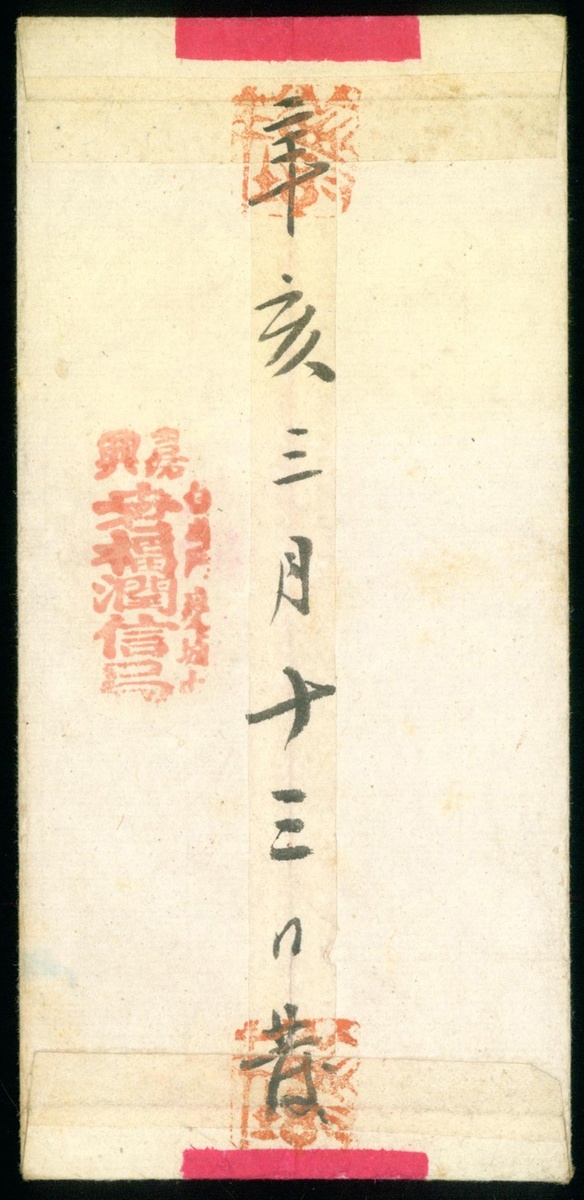 辛亥三月十三日發
嘉興
老福潤信局